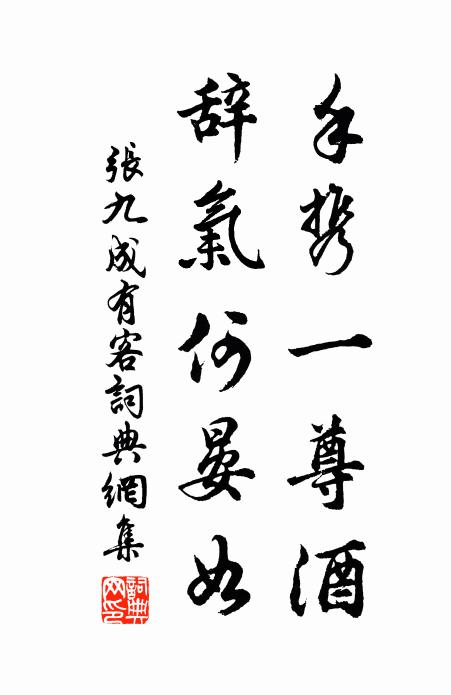 手携一尊酒
辞氣何晏如
張九成有客詞典網集
詞典網印